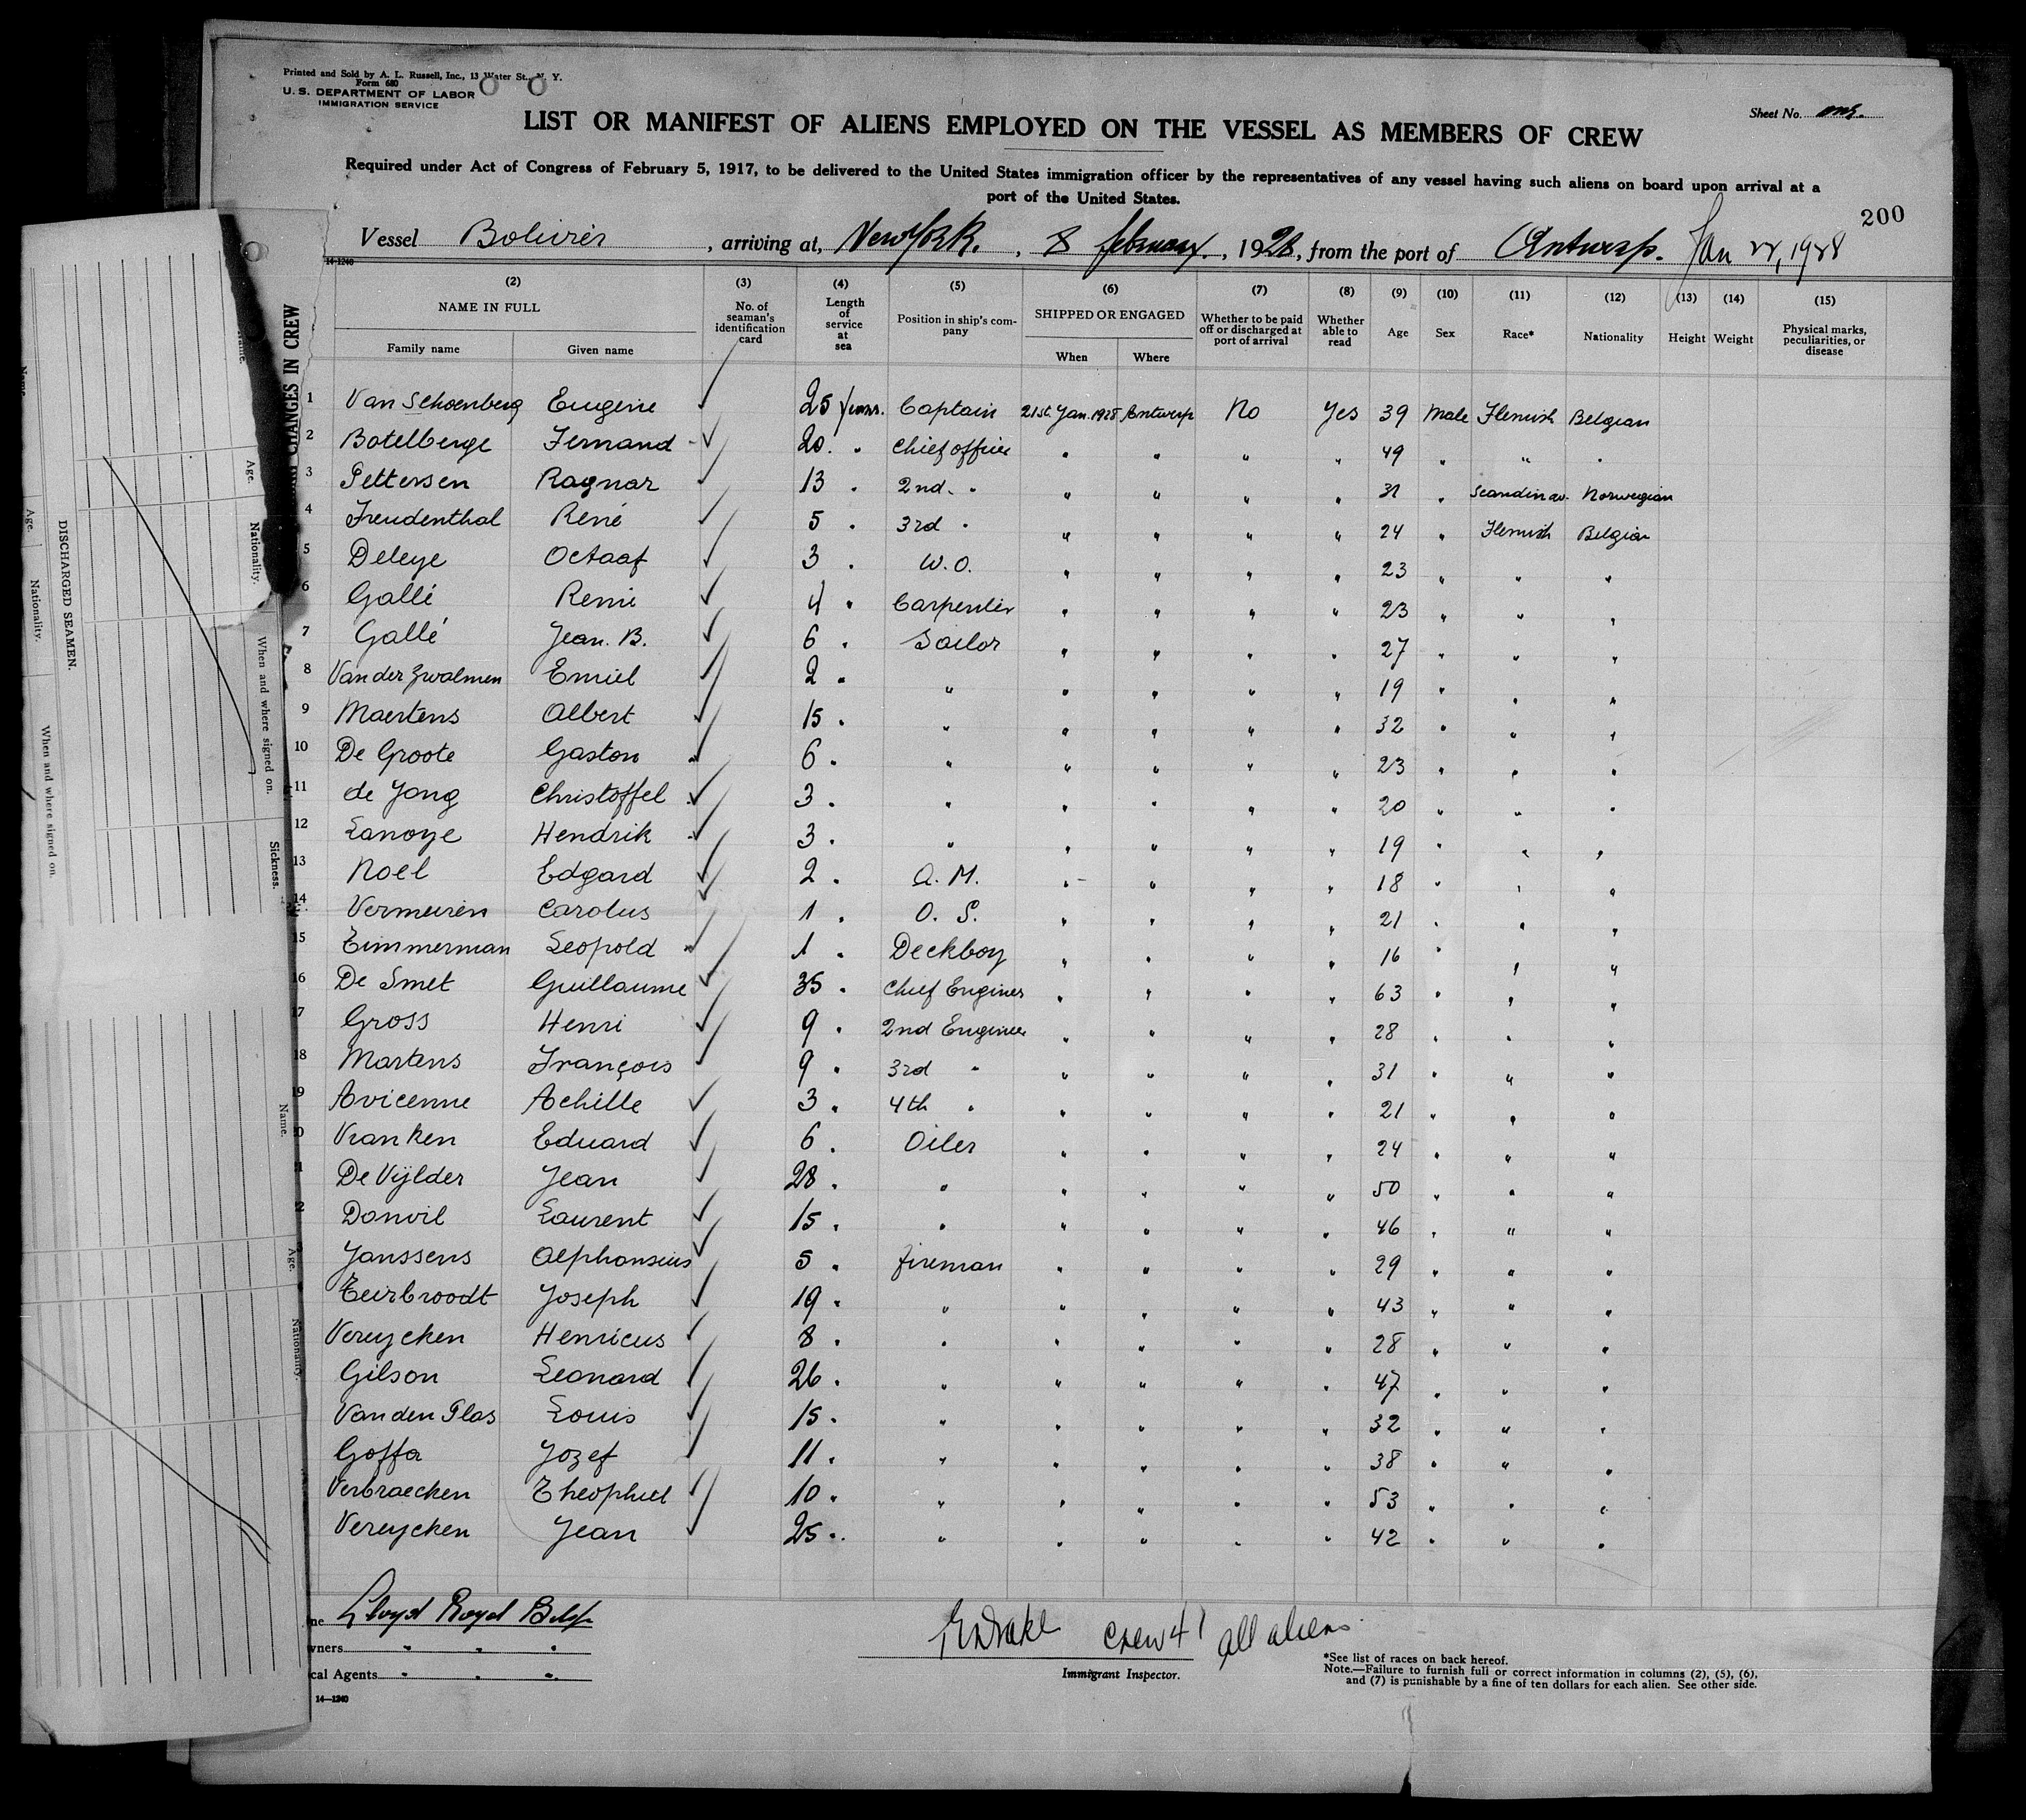 Printed and Sold by A. L. Russell, Inc., 13 Water St., N. Y.
Form 680
U. S. DEPARTMENT OF LABOR
IMMIGRATION SERVICE
Sheet No.
LIST OR MANIFEST OF ALIENS EMPLOYED ON THE VESSEL AS MEMBERS OF CREW
Required under Act of Congress of February 5, 1917, to be delivered to the United States immigration officer by the representatives of any vessel having such aliens on board upon arrival at a
port of the United States.
200
Vessel Bolivier, arriving at, New York., 8 february., 1928, from the port of Antwerp. Jan 22, 1928
14-1240
(2) (3) (4) (5) (6) (7) (8) (9) (10) (11) (12) (13) (14) (15)
NAME IN FULL
Family name Given name
No. of seaman's identification card
Length of service at sea
Position in ship's company
SHIPPED OR ENGAGED
When Where
Whether to be paid off or discharged at port of arrival
Whether able to read
Age
Sex
Race*
Nationality
Height
Weight
Physical marks, peculiarities, or disease
1 Van Schoenberg Eugene ✓ 25 years. Captain 21st Jan. 1928 Antwerp No Yes 39 Male Flemish Belgian
2 Botelberge Fernand ✓ 20 " Chief officer " " " " 49 " " "
3 Pettersen Ragnar ✓ 13 " 2nd " " " " " 31 " Scandinav. Norwegian
4 Freudenthal René ✓ 5 " 3rd " " " " " 24 " Flemish Belgian
5 Deleye Octaaf ✓ 3 " W. O. " " " " 23 " " "
6 Gallé Remi ✓ 4 " Carpenter " " " " 23 " " "
7 Gallé Jean. B. ✓ 6 " Sailor " " " " 27 " " "
8 Van der Zwalmen Emiel ✓ 2 " " " " " " 19 " " "
9 Maertens Albert ✓ 15 " " " " " " 32 " " "
10 De Groote Gaston ✓ 6 " " " " " " 23 " " "
11 de Jong Christoffel ✓ 3 " " " " " " 20 " " "
12 Lanoye Hendrik ✓ 3 " " " " " " 19 " " "
13 Noel Edgard ✓ 2 " A. M. " " " " 18 " " "
14 Vermeiren Carolus ✓ 1 " O. S. " " " " 21 " " "
15 Timmerman Leopold ✓ 1 " Deckboy " " " " 16 " " "
16 De Smet Guillaume ✓ 35 " Chief Engineer " " " " 63 " " "
17 Gross Henri ✓ 9 " 2nd Engineer " " " " 28 " " "
18 Martens François ✓ 9 " 3rd " " " " " 31 " " "
19 Avicenne Achille ✓ 3 " 4th " " " " " 21 " " "
0 Vranken Eduard ✓ 6 " Oiler " " " " 24 " " "
1 De Vylder Jean ✓ 28 " " " " " " 50 " " "
2 Donvil Laurent ✓ 15 " " " " " " 46 " " "
3 Janssens Alphonsius ✓ 5 " fireman " " " " 29 " " "
Teirbroodt Joseph ✓ 19 " " " " " " 43 " " "
Vereycken Henricus ✓ 8 " " " " " " 28 " " "
Gilson Leonard ✓ 26 " " " " " " 47 " " "
Van den Plas Louis ✓ 15 " " " " " " 32 " " "
Goffa Jozef ✓ 11 " " " " " " 38 " " "
Verbraecken Theophiel ✓ 10 " " " " " " 53 " " "
Vereycken Jean ✓ 25 " " " " " " 42 " " "
ne Lloyd Royal Belge
wners " " "
cal Agents " " "
14—1240
crew 41 all aliens
Immigrant Inspector.
*See list of races on back hereof.
Note.—Failure to furnish full or correct information in columns (2), (5), (6),
and (7) is punishable by a fine of ten dollars for each alien. See other side.
CHANGES IN CREW
DISCHARGED SEAMEN.
Name.
Age.
Nationality.
When and where signed on.
Sickness.
Name.
Age.
Nationality.
Age.
Nationality.
When and where signed on.